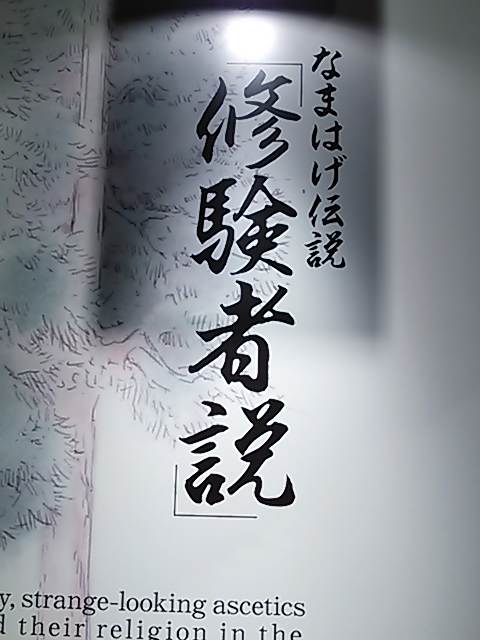 なまはげ伝説
「修験者説」
y, strange-looking ascetics
d their religion in the